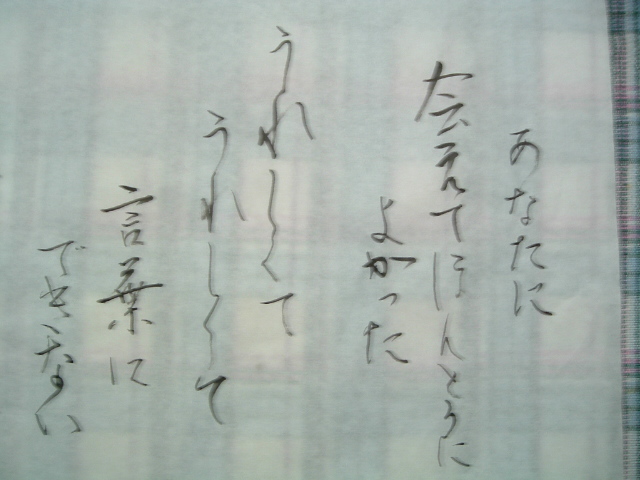 あなたに
会えてほんとうに
よかった
うれしくて
うれしくて
言葉に
できない